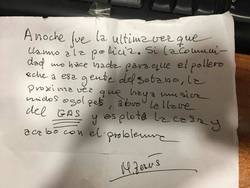 Anoche fue la ultima vez que
llamo a la policia. Si la comuni-
dad no hace nada para que el pollero
eche a esa gente del sotano, la
proxima vez que haya musica
ruidos o golpes, abro la llave
del GAS y esploto la casa y
acabo con el problema